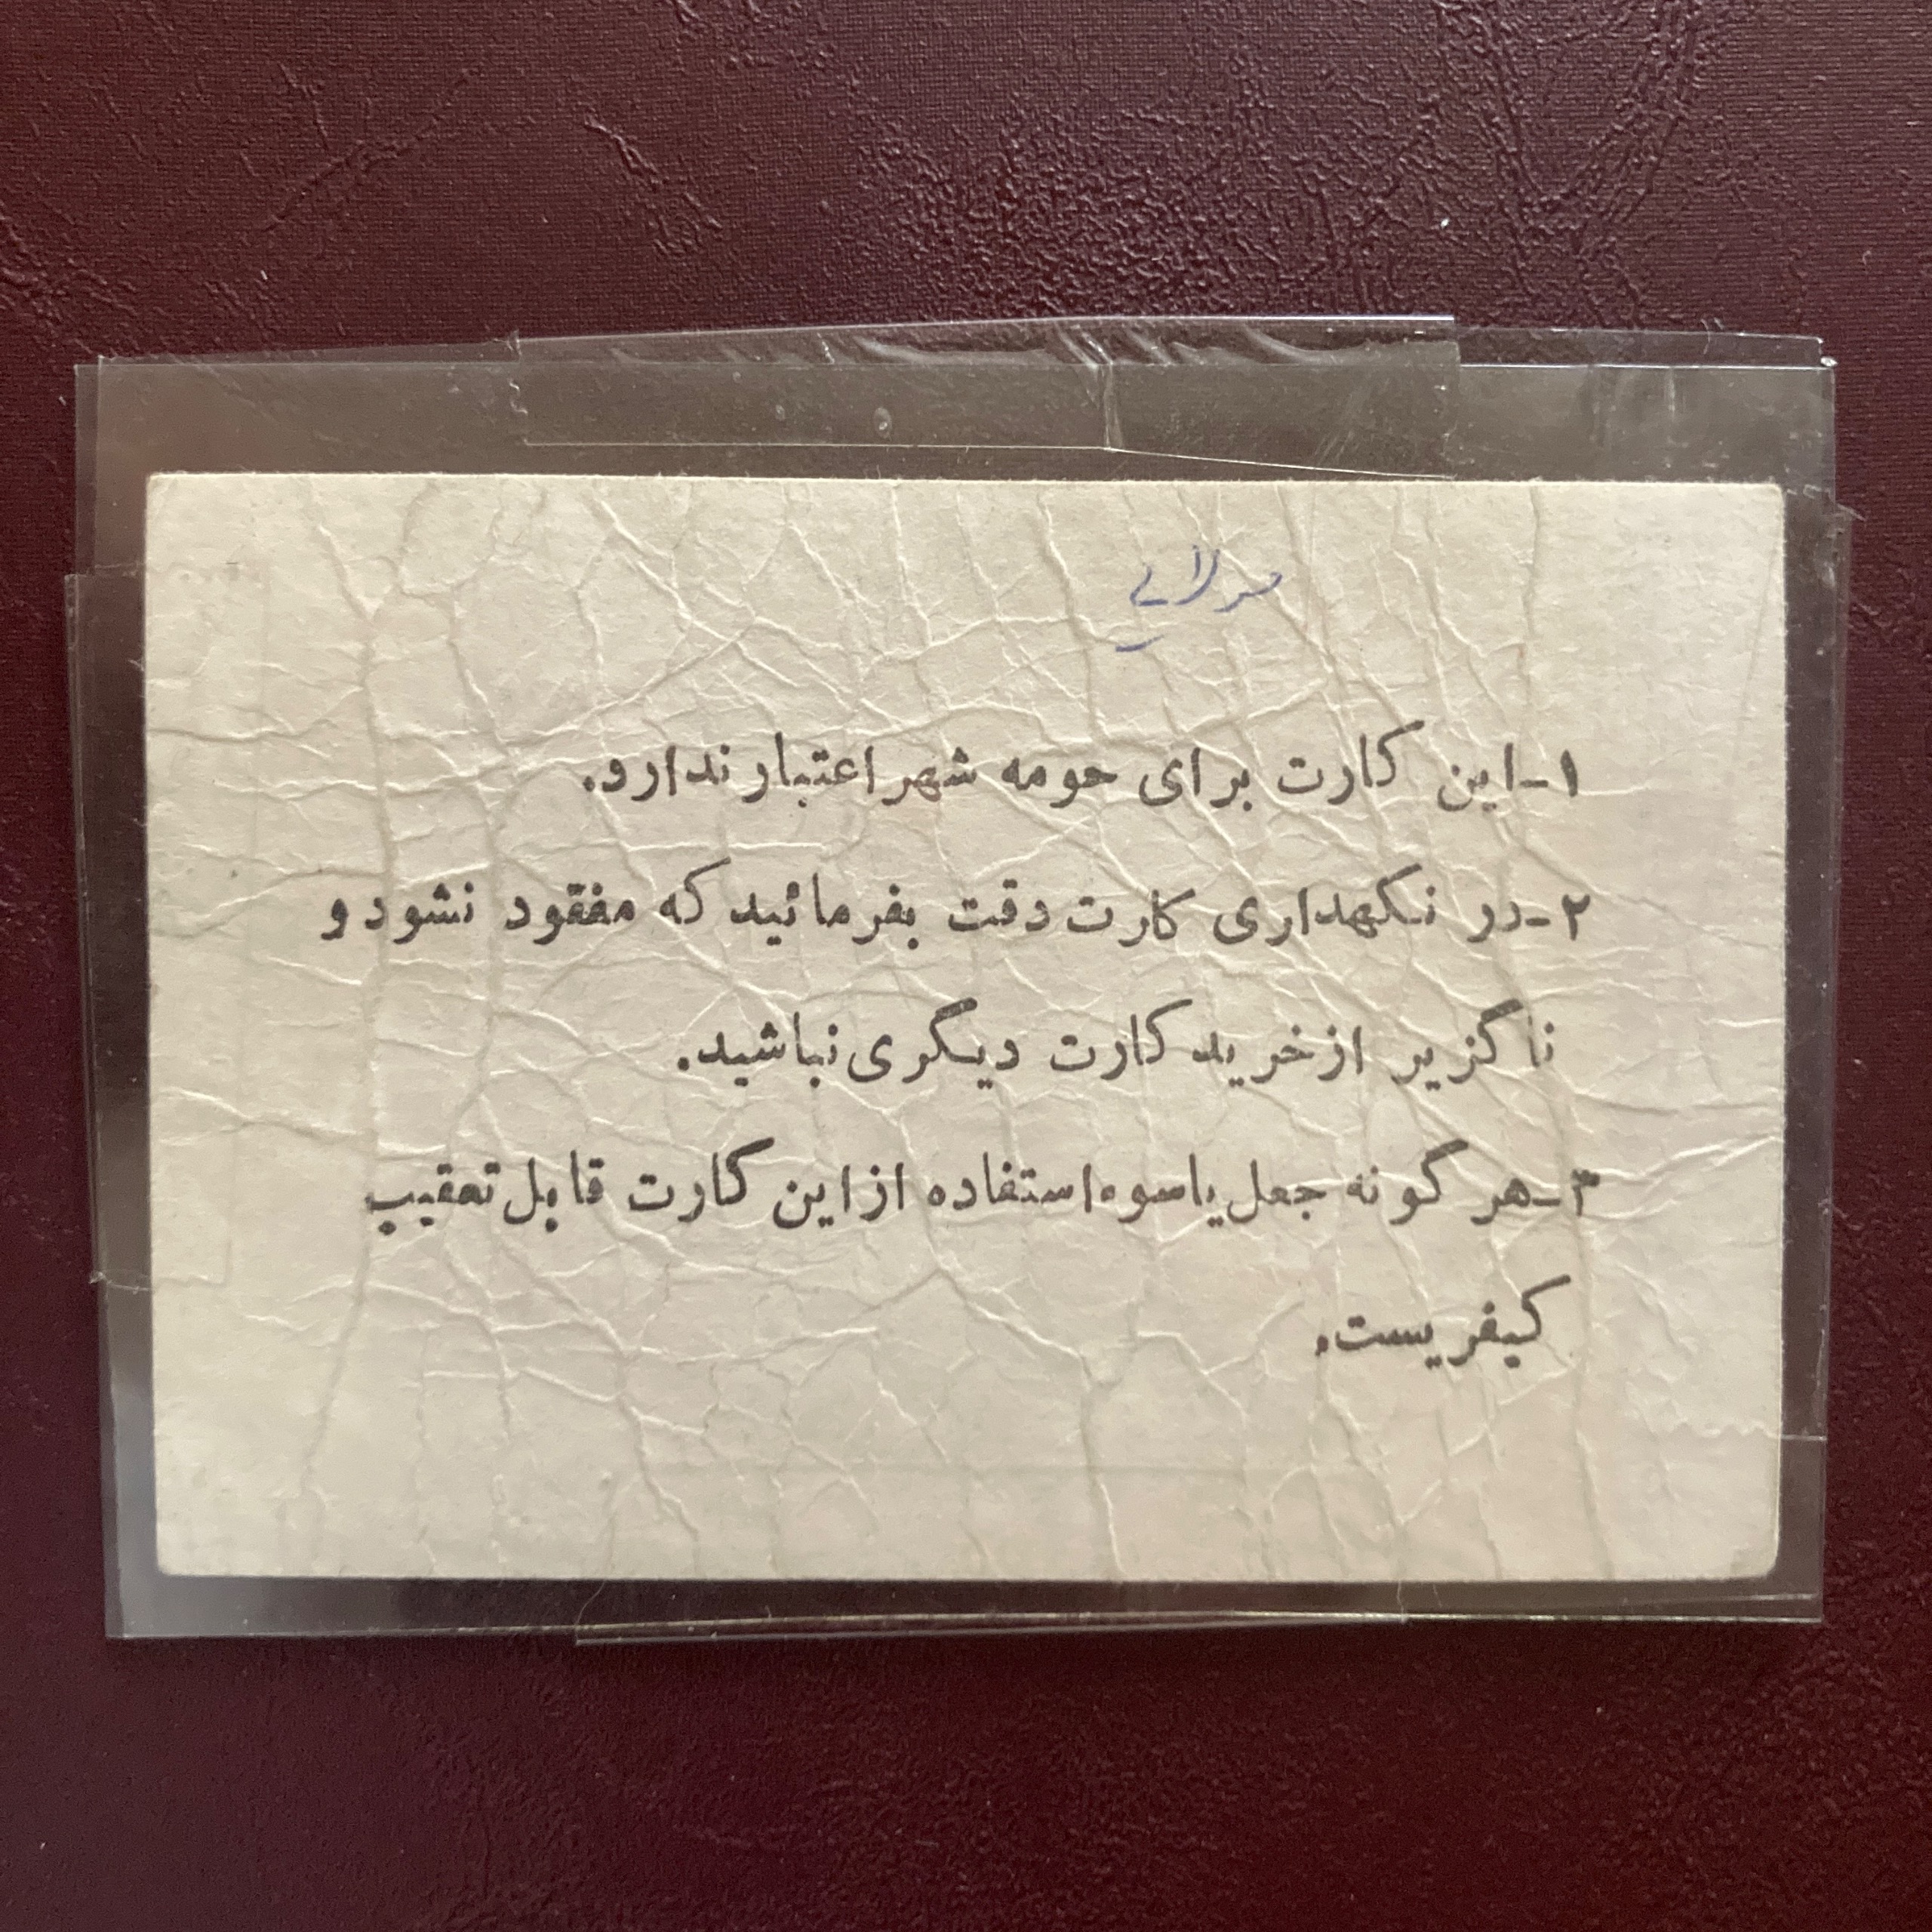 ۱-این کارت برای حومه شهر اعتبار ندارد.
۲-در نگهداری کارت دقت بفرمائید که مفقود نشود و
ناگزیر از خرید کارت دیگری نباشید.
۳-هر گونه جعل یا سوء استفاده از این کارت قابل تعقیب
کیفریست.